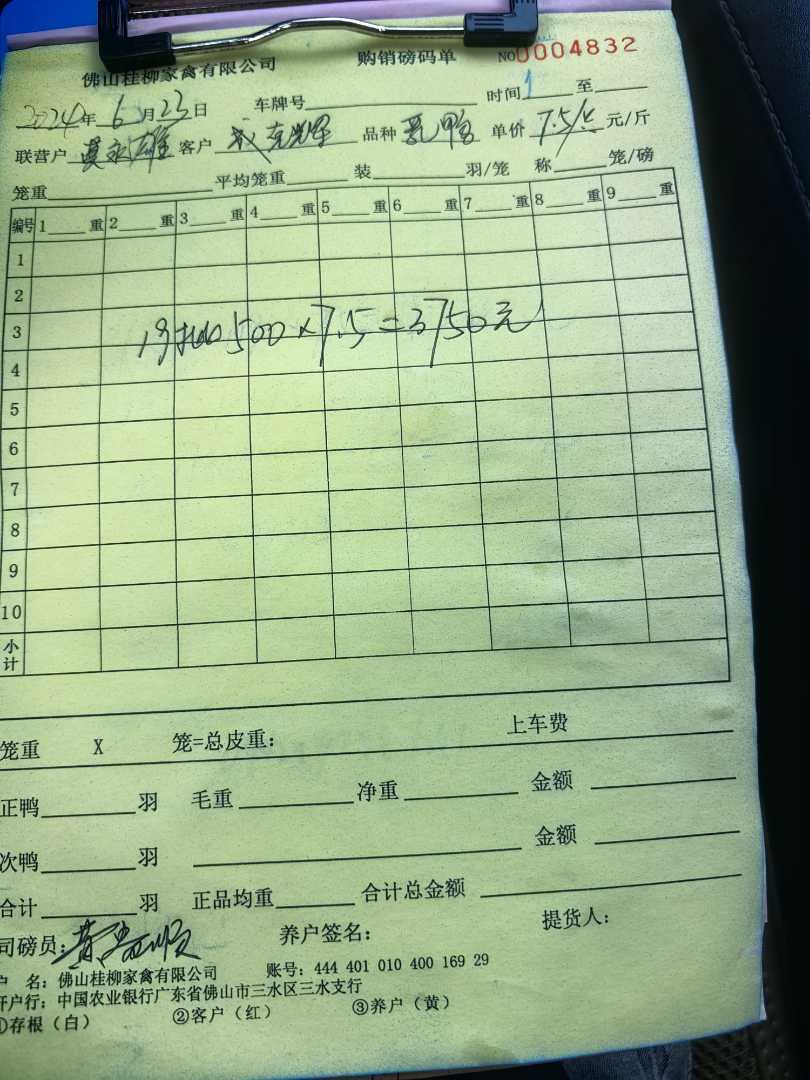 佛山桂柳家禽有限公司 购销磅码单 NO0004832
2024年6月23日 车牌号 时间1 至
联营户 莫永雄 客户 品种 乳鸭 单价 7.5/斤 元/斤
笼重 平均笼重 装 羽/笼 称 笼/磅
编号 1 重 2 重 3 重 4 重 5 重 6 重 7 重 8 重 9 重
1
2
3
500×7.5=3750元
4
5
6
7
8
9
10
小计
笼重 X 笼=总皮重: 上车费
正鸭 羽 毛重 净重 金额
次鸭 羽 金额
合计 羽 正品均重 合计总金额
司磅员: 养户签名: 提货人:
户 名: 佛山桂柳家禽有限公司 账号: 444 401 010 400 169 29
开户行: 中国农业银行广东省佛山市三水区三水支行
①存根(白) ②客户(红) ③养户(黄)